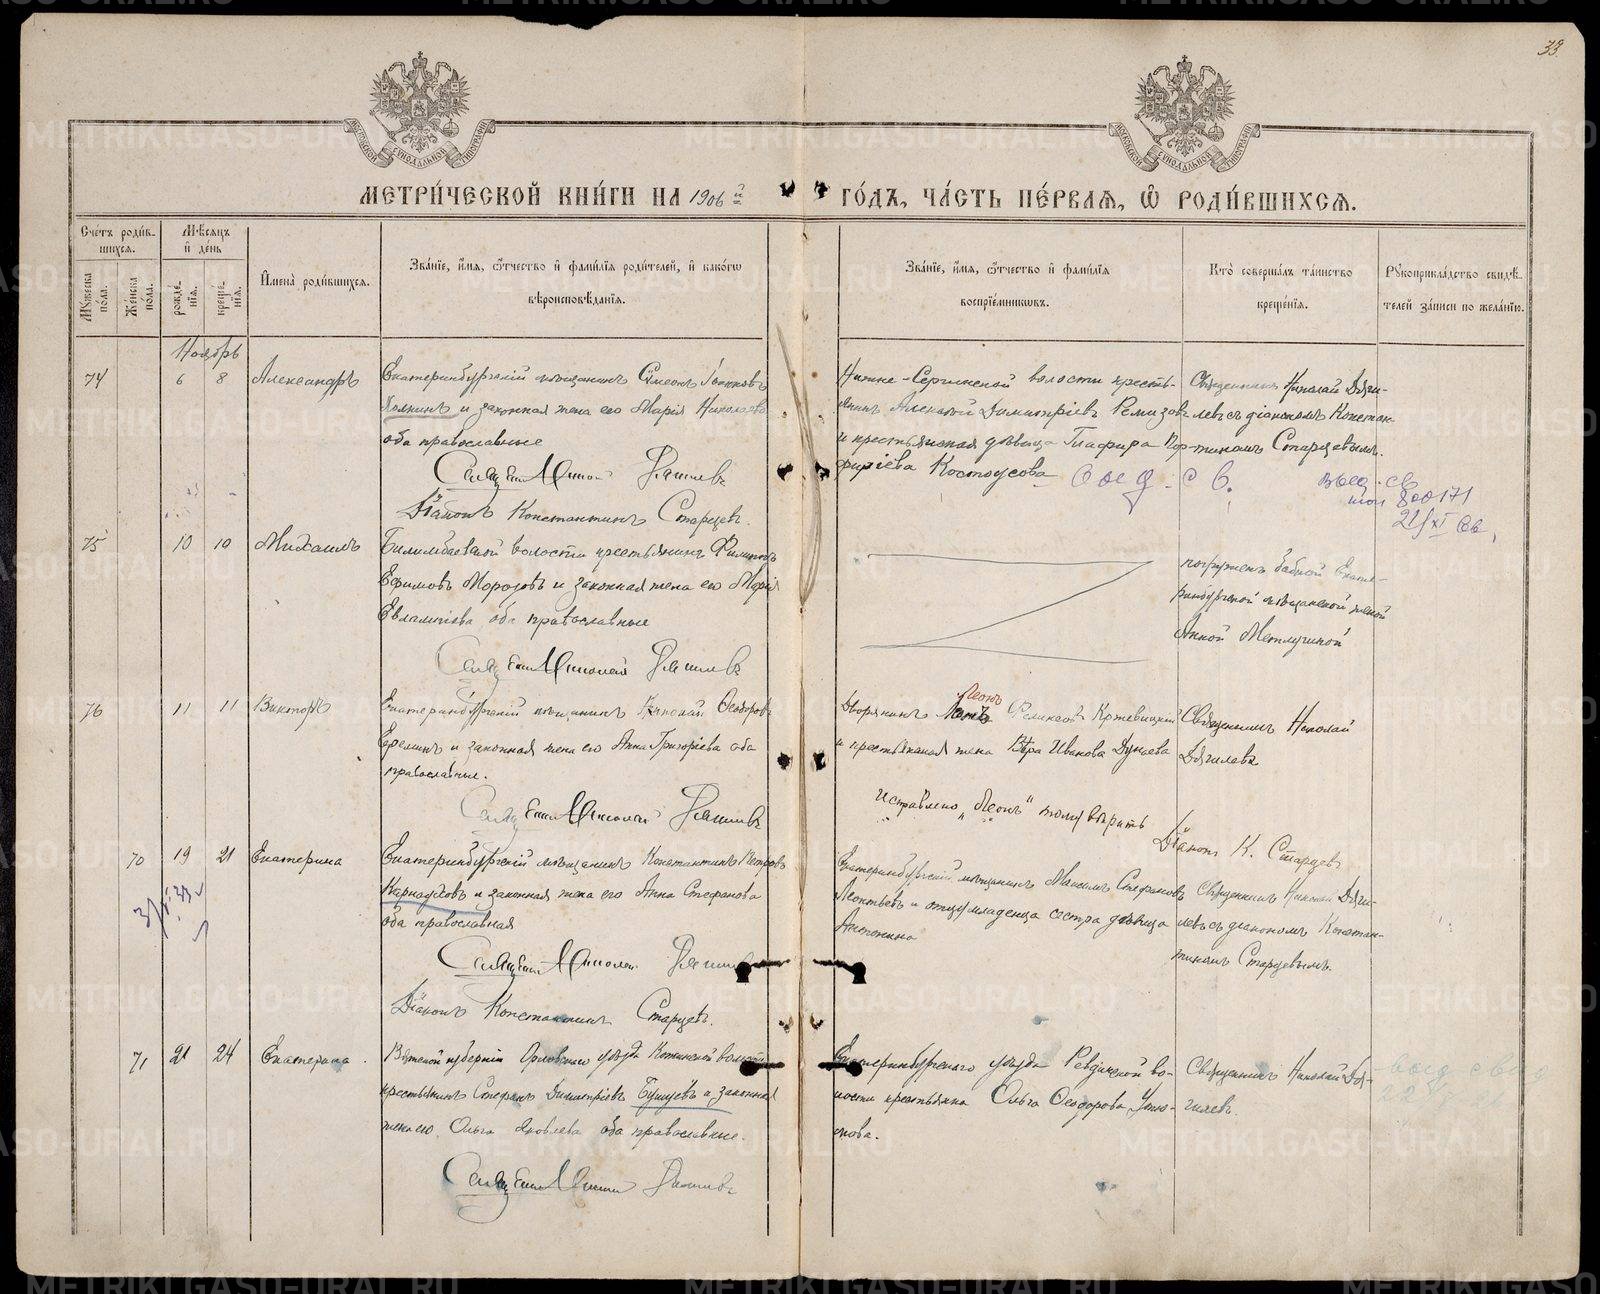 33
МЕТРИ́ЧЕСКОЙ КНИ́ГИ НА 1906 й ГО́ДЪ, ЧА́СТЬ ПЕ́РВАЯ, Ѡ҆ РОДИ́ВШИХСЯ.
Сче́тъ роди́в-
шихся.
Му́жеска
пола.
Же́нска
по́ла.
Мѣ́сяцъ
и҆ де́нь
рожде́-
нїя.
креще́-
нїя.
И҆мена̀ роди́вшихся.
Зва́нїе, и҆́мя, ѻ҆́тчество и҆ фами́лїя роди́телей, и҆ како́гѡ
вѣроисповѣ́данїя.
Зва́нїе, и҆́мя, ѻ҆́тчество и҆ фами́лїя
воспрїе́мниковъ.
Кто̀ соверша́лъ та́инство
креще́нїя.
Рꙋкоприкла́дство свидѣ́-
телей за́писи по жела́нїю.
Ноябрь
74
6 8
Александръ
Екатеринбургскій мѣщанинъ Сѵмеонъ
и законная жена его Марія Николаева
оба православные
Священникъ Николай Дягилевъ
Діаконъ Константинъ Старцевъ.
Нижне-Сергинской волости кресть-
янинъ Алексѣй Димитріевъ Ремизовъ
и крестьянская дѣвица Глафира Пор-
фиріева Костоусова
Священникъ Николай Дяги-
левъ съ діакономъ Констан-
тиномъ Старцевымъ.
выд. св.
21/XI
75
10 10
Михаилъ
Билимбаевской волости крестьянинъ Филиппъ
Ефимовъ Морозовъ и законная жена его Марія
Евлампіева оба православные
Священникъ Николай Дягилевъ
погруженъ бабкой Екате-
ринбургской мѣщанской женой
Анной
76
11 11
Викторъ
Екатеринбургскій мѣщанинъ Николай Ѳеодоровъ
Ереминъ и законная жена его Анна Григоріева оба
православные.
Священникъ Николай Дягилевъ
Леонъ
Дворянинъ Феликсовъ Кржевицкій
и крестьянская жена Вѣра Иванова Дунаева
Исправлено „Леонъ" тому вѣрить
Священникъ Николай
Дягилевъ
Діаконъ К. Старцевъ
70
19 21
Екатерина
Екатеринбургскій мѣщанинъ Константинъ Петровъ
Карнауховъ и законная жена его Анна Стефанова
оба православная
Священникъ Николай Дягилевъ
Діаконъ Константинъ Старцевъ.
Екатеринбургскій мѣщанинъ Максимъ Стефановъ
Леонтьевъ и отцу младенца сестра дѣвица
Антонина
Священникъ Николай Дяги-
левъ съ діакономъ Констан-
тиномъ Старцевымъ.
71
21 24
Екатерина
Вятской губерніи Орловскаго уѣзда волости
крестьянинъ Стефанъ Димитріевъ Бушуевъ и законная
жена его Ольга Яковлева оба православные.
Священникъ Николай Дягилевъ
Екатеринбургскаго уѣзда Ревдинской во-
лости крестьянка Ольга Ѳеодорова
нова.
Священникъ Николай Дя-
гилевъ.
METRIKI.GASO-URAL.RU